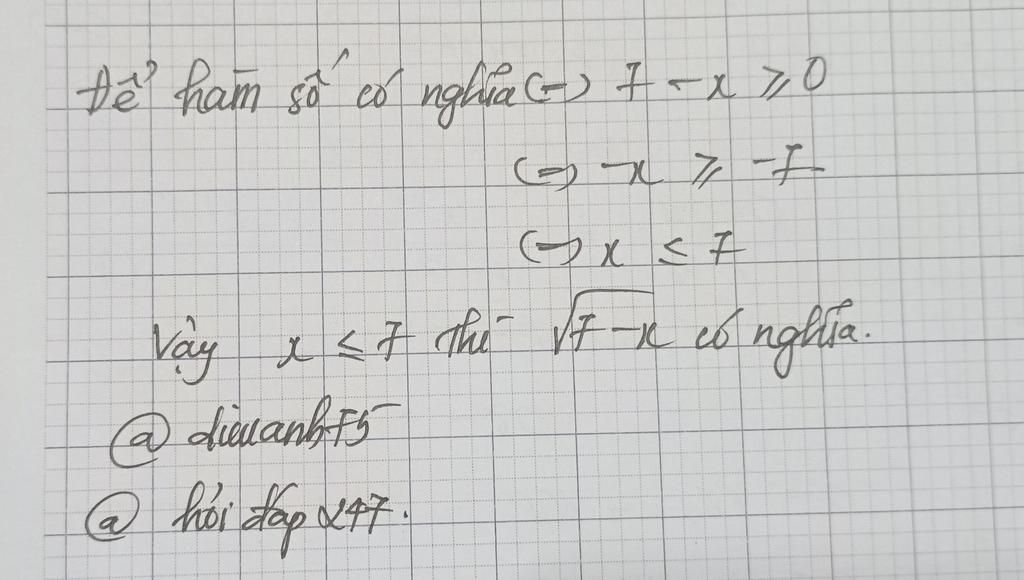 Để hàm số có nghĩa (=) 7 - x ≥ 0
(=) -x ≥ -7
(=) x ≤ 7
Vậy x ≤ 7 thì √7-x có nghĩa.
@ dieuanh75
@ hỏi đáp 247.